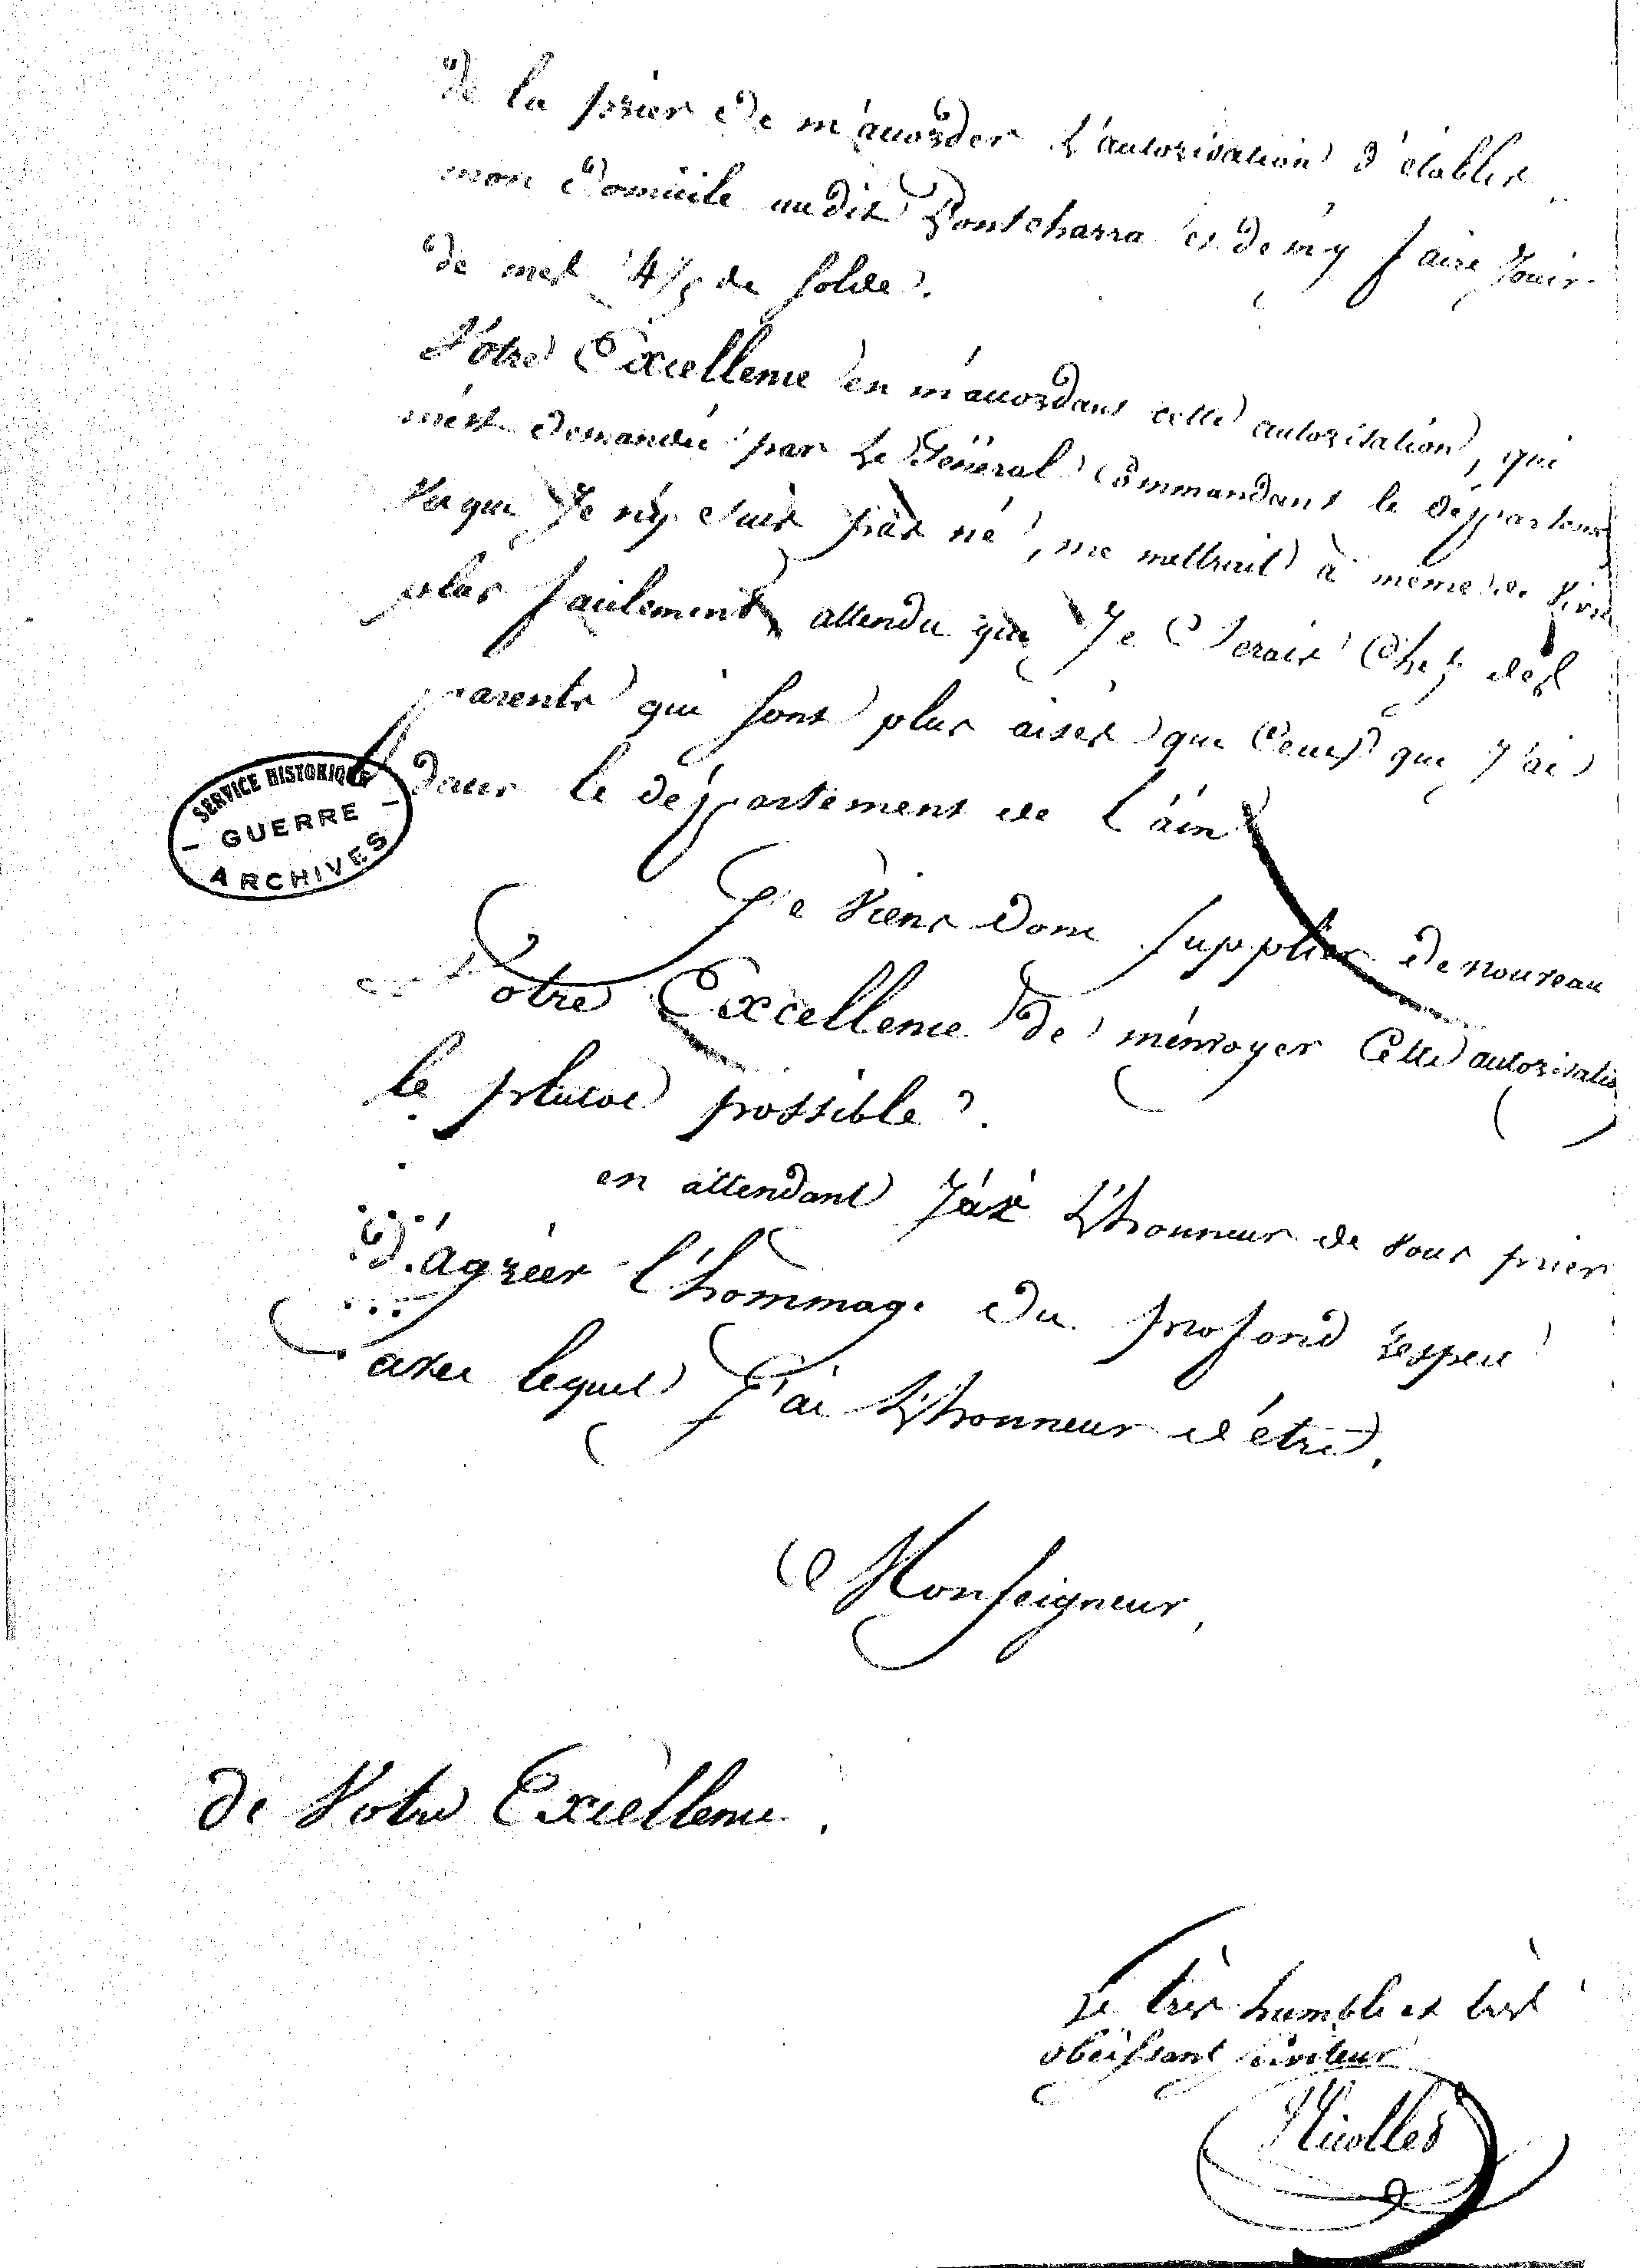 de la prier de m'accorder L'autorisation d'établir
mon domicile audit Pontcharra et de m'y faire Jouir
de mes 4/5 de solde.
Votre Excellence en m'accordant cette autorisation, qui
m'est demandée par Le Général Commandant le département
Vu que Je n'y suis pas né, me mettrait à même de vivre
plus facilement attendu que Je serais Chez des
parents qui sont plus aisés que Ceux que J'ai
dans le département de l'ain
SERVICE HISTORIQUE
- GUERRE -
ARCHIVES
Je viens donc supplier de nouveau
Votre Excellence de m'envoyer Cette autorisation
le plutot possible.
en attendant J'ai L'honneur de vous prier
d'agréer l'hommage du profond respect
avec lequel J'ai L'honneur d'être,
Monseigneur,
de Votre Excellence,
Le très humble et très
obéissant serviteur
Nicollet